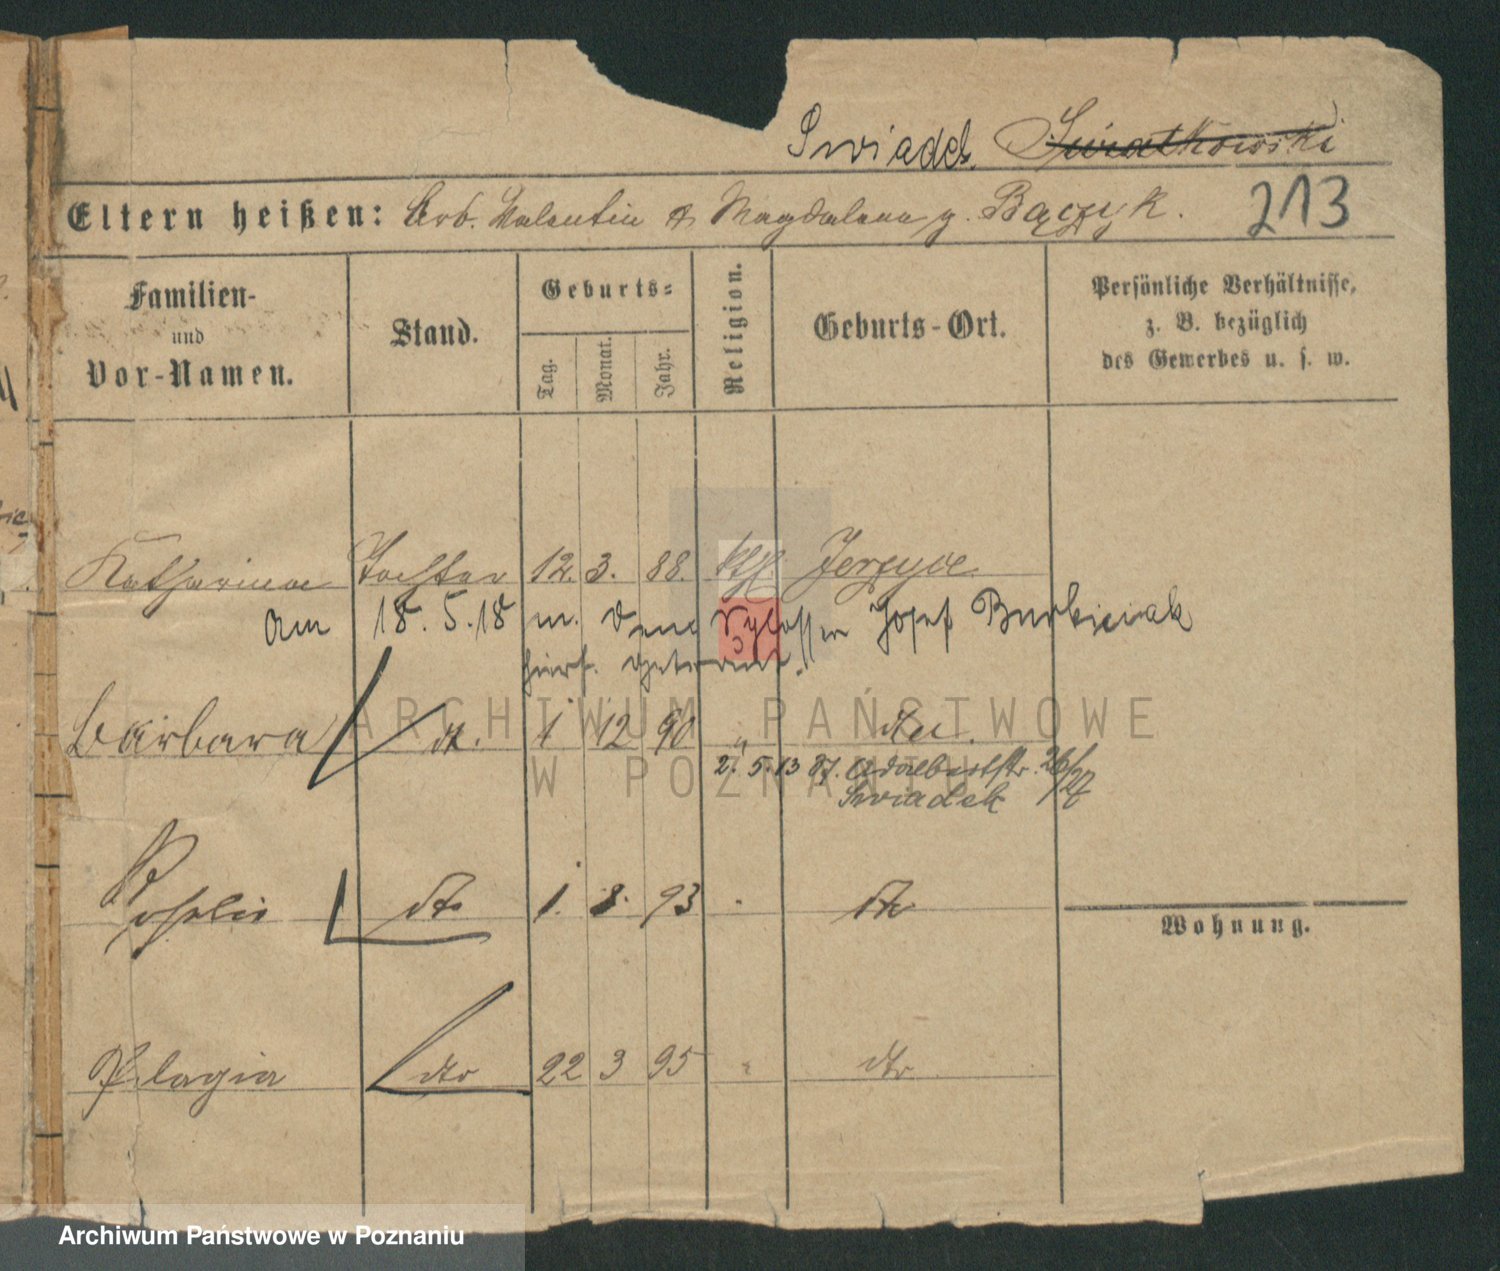 Swiadek Swiatkowski
Eltern heißen: Arb. Valentin & Magdalena g. Bączyk. 213
Familien- und Vor-Namen. Stand. Geburts- Tag. Monat. Jahr. Religion. Geburts-Ort. Persönliche Verhältnisse, z. B. bezüglich des Gewerbes u. s. w.
Katharina Tochter 12. 3. 88. kth. Jerzyce
Am 18. 5. 18 m. dem Schlosser Josef
hier getraut.
Barbara dt. 1 12 90 " dto.
2. 5. 13 Adalbertstr. 26/27
Swiadek
dto 1. 8. 93 dto
Wohnung.
Pelagia dto 22 3 95 " dto
ARCHIWUM PAŃSTWOWE
W POZNANIU
Archiwum Państwowe w Poznaniu